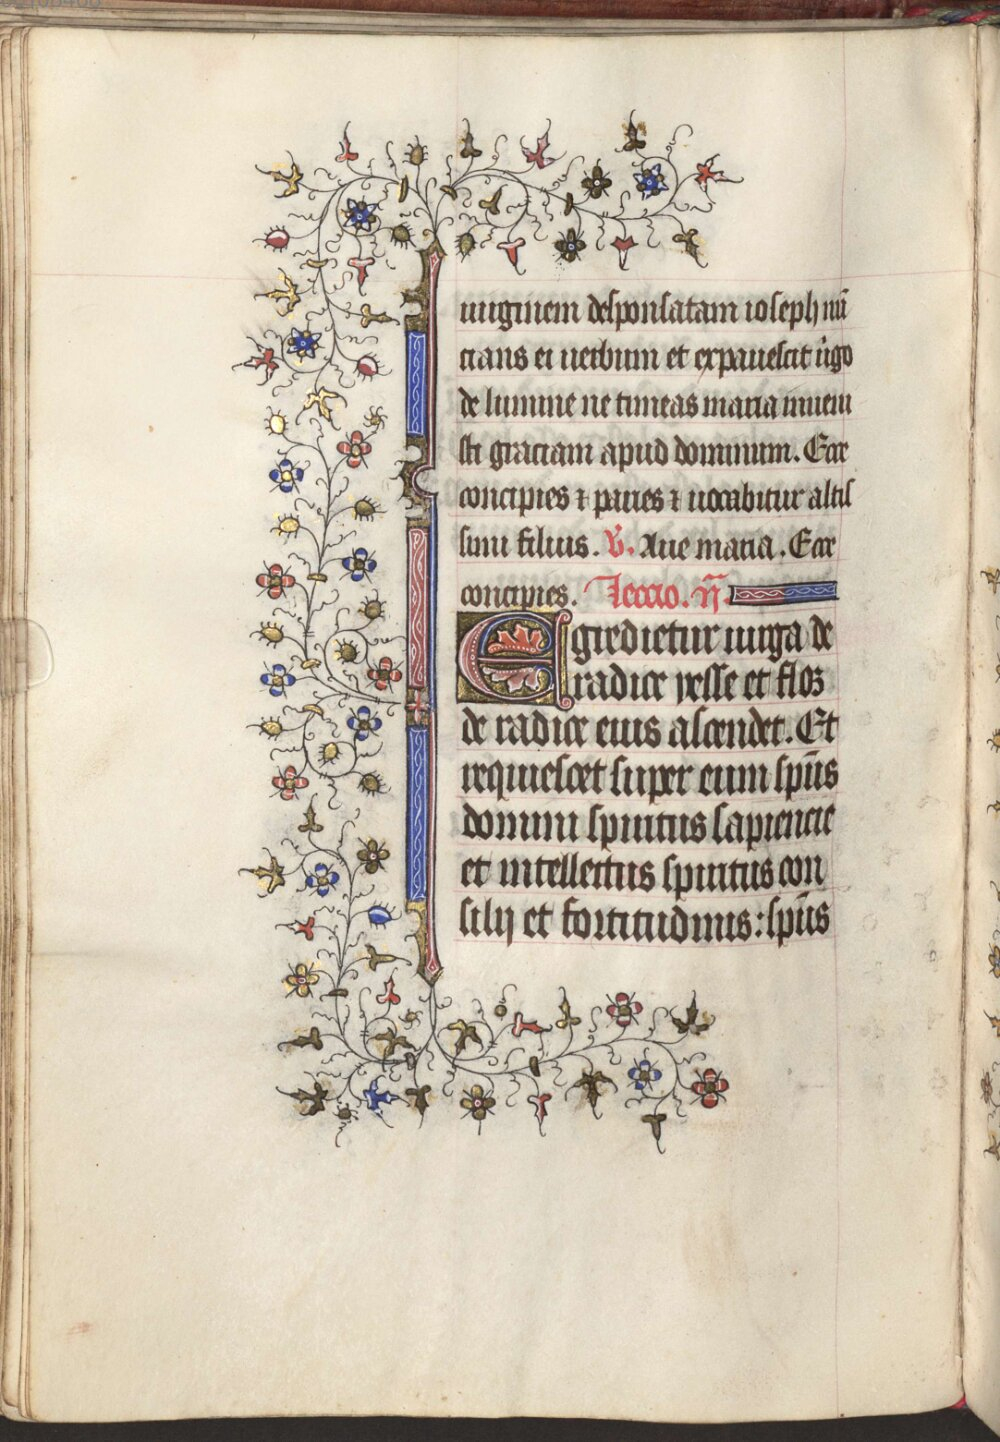 uirginem desponsatam ioseph nū
cians ei uerbum et expauescit u̇go
de lumine ne timeas maria inueni
sti graciam apud dominum. Ecce
concipies ⁊ paries ⁊ uocabitur altis
simi filius. ℣. Aue maria. Ecce
concipies. Leccio. ij̄
Egredietur uirga de
radice yesse et flos
de radice eius ascendet. Et
requiescet super eum sp̄us
domini spiritus sapiencie
et intellectus spiritus con
silij et fortitudinis: sp̄us